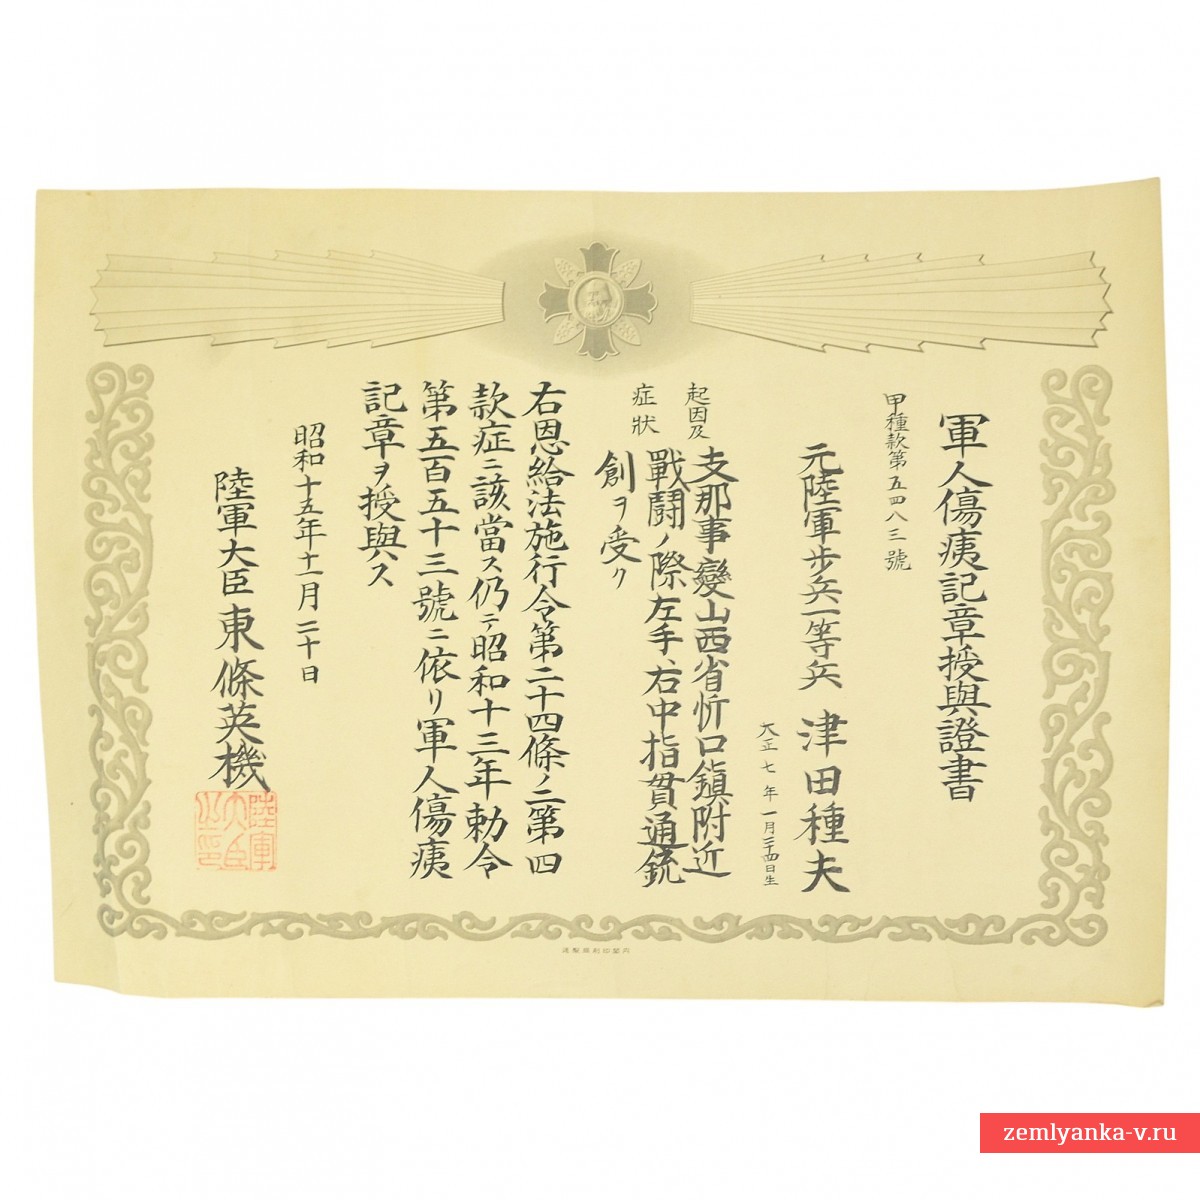 軍人傷痍記章授與證書
甲種款第五四八三號
元陸軍步兵一等兵 津田種夫
大正七年一月二十四日生
起因及
症狀
支那事變山西省忻口鎮附近
戰鬪ノ際左手右中指貫通銃
創ヲ受ク
右恩給法施行令第二十四條ノ二第四
款症ニ該當ス仍テ昭和十三年勅令
第五百五十三號ニ依リ軍人傷痍
記章ヲ授與ス
昭和十五年十一月二十日
陸軍大臣 東條英機
陸軍
大臣
之印
內閣印刷局製造
zemlyanka-v.ru